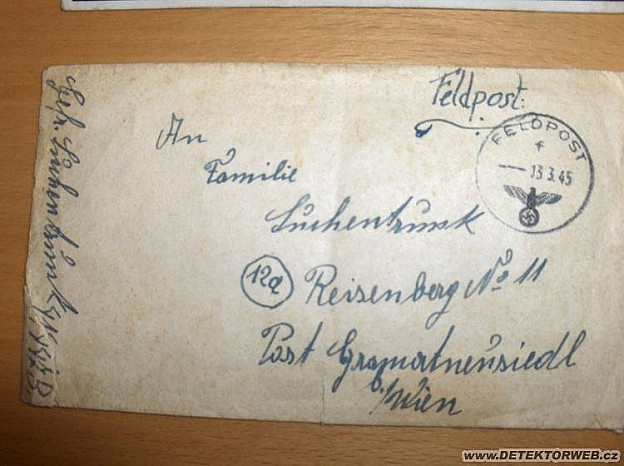 Feldpost.
FELDPOST
f
13.3.45
An
Familie
Suchentrunk
12a Reisenberg No 11
Post Gramatneusiedl
b/Wien
Gefr. Suchentrunk
WWW.DETEKTORWEB.cz